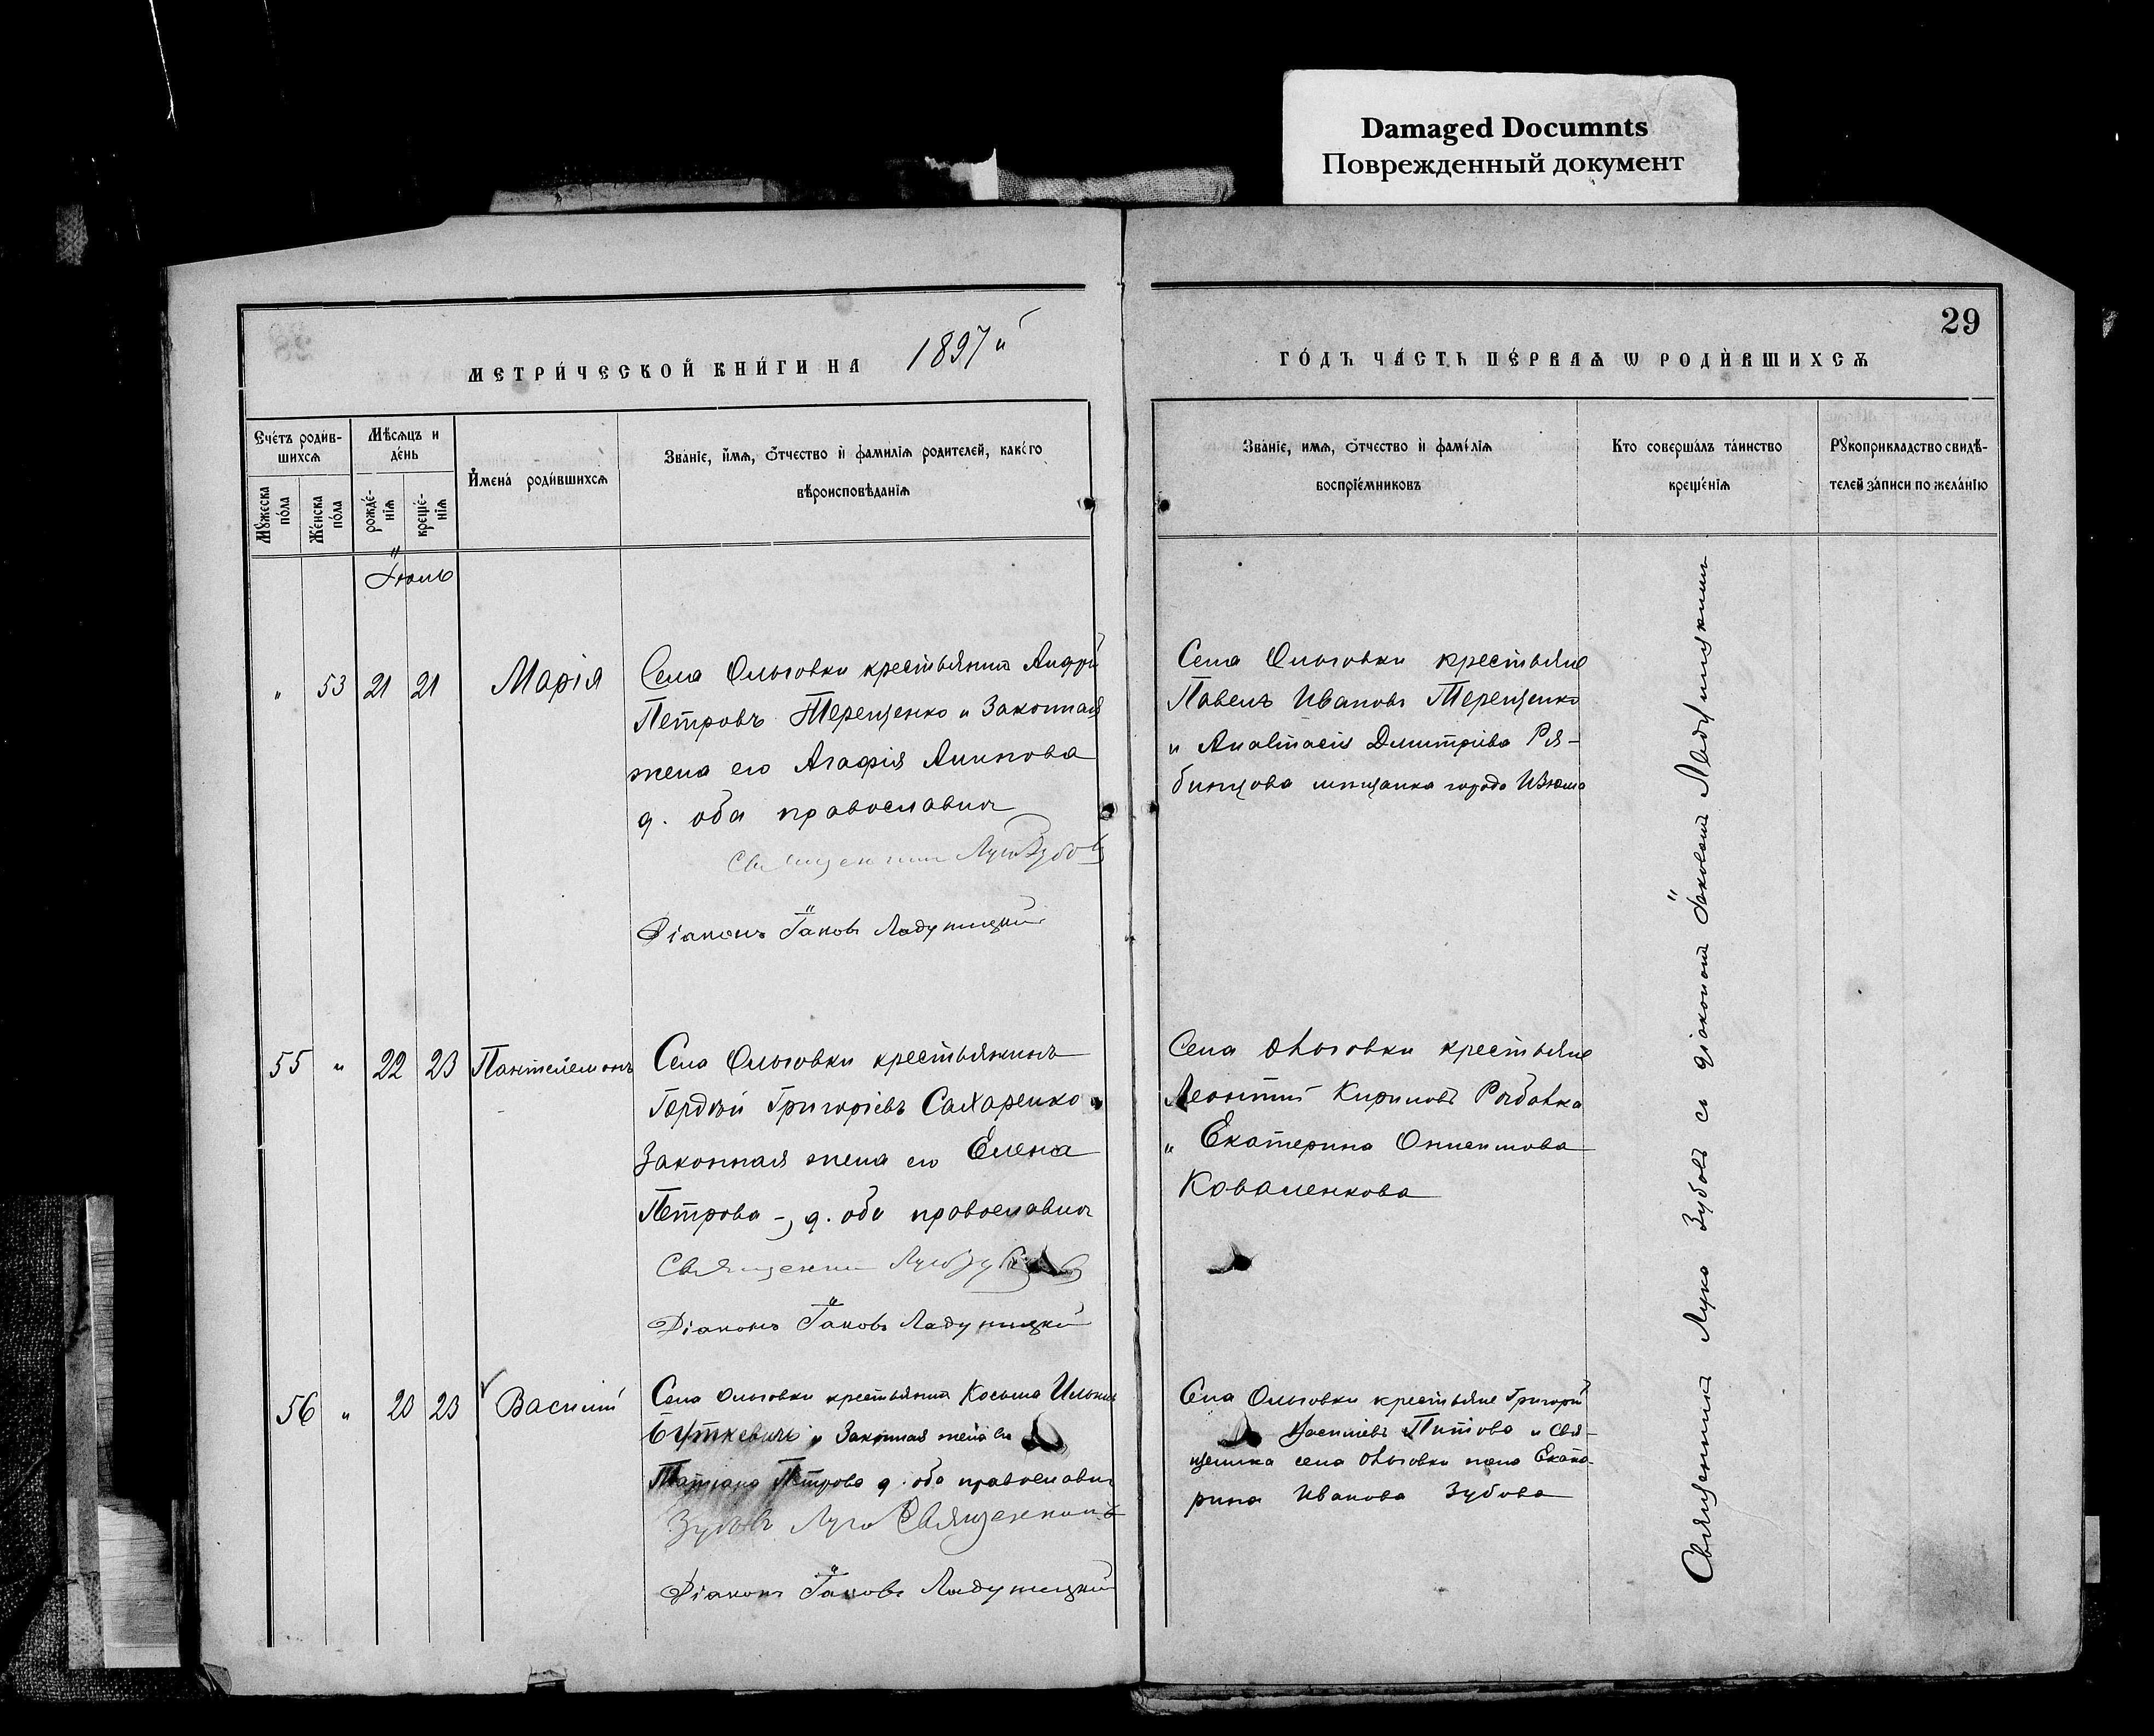 Damaged Documnts
Поврежденный документ
29
МЕТРИ́ЧЕСКОЙ КНИ́ГИ НА 1897й
ГО́ДЪ ЧА́СТЬ ПЕ́РВАѦ Ѡ РОДИ́ВШИХСѦ
Счётъ роди́в-
шихсѧ
Мꙋ́жеска
по́ла
Же́нска
по́ла
Мѣ́сѧцъ и
де́нь
рожде́-
нїѧ
креще́-
нїѧ
И҆мена̀ роди́вшихсѧ
Зва́нїе, и҆́мѧ, ѻ҆́тчество и҆ фами́лїѧ роди́телей, како́го
вѣроисповѣ́данїѧ
Зва́нїе, и҆́мѧ, ѻ҆́тчество и҆ фами́лїѧ
воспрїе́мниковъ
Кто соверша́лъ та́инство
креще́нїѧ
Рꙋкоприкла́дство свидѣ́-
телей за́писи по жела́нїю
Іюль
" 53 21 21 Марія
Села Ольговки крестьянинъ Андрей
Петровъ Терещенко и Законная
жена его Агафія
д. оба православны
Священникъ Лука Зубовъ
Діаконъ Іаковъ Ладухицкій
Села Ольговки крестьяне
Павелъ Ивановъ Терещенко
и Анастасія Димитріева Ря-
бинцова мѣщанка города Изюма
55 " 22 23 Пантелеимонъ
Села Ольговки крестьянинъ
Гордѣй Григоріевъ Сахаренко и
Законная жена его Елена
Петрова д. оба православны
Священникъ Лука Зубовъ
Діаконъ Іаковъ Ладухицкій
Села Ольговки крестьяне
Леонтій Кириловъ
и Екатерина Онисимова
Коваленкова
56 " 20 23 Василій
Села Ольговки крестьянинъ Косьма
Буткевичъ и Законная жена его
Татіана Петрова д. оба православны
Зубовъ Лука Священникъ
Діаконъ Іаковъ Ладухицкій
Села Ольговки крестьяне Григорій
Васильевъ и свя-
щенника села Ольговки жена Екате-
рина Иванова Зубова
Священникъ Лука Зубовъ съ діакономъ Іаковомъ Ладухицкимъ